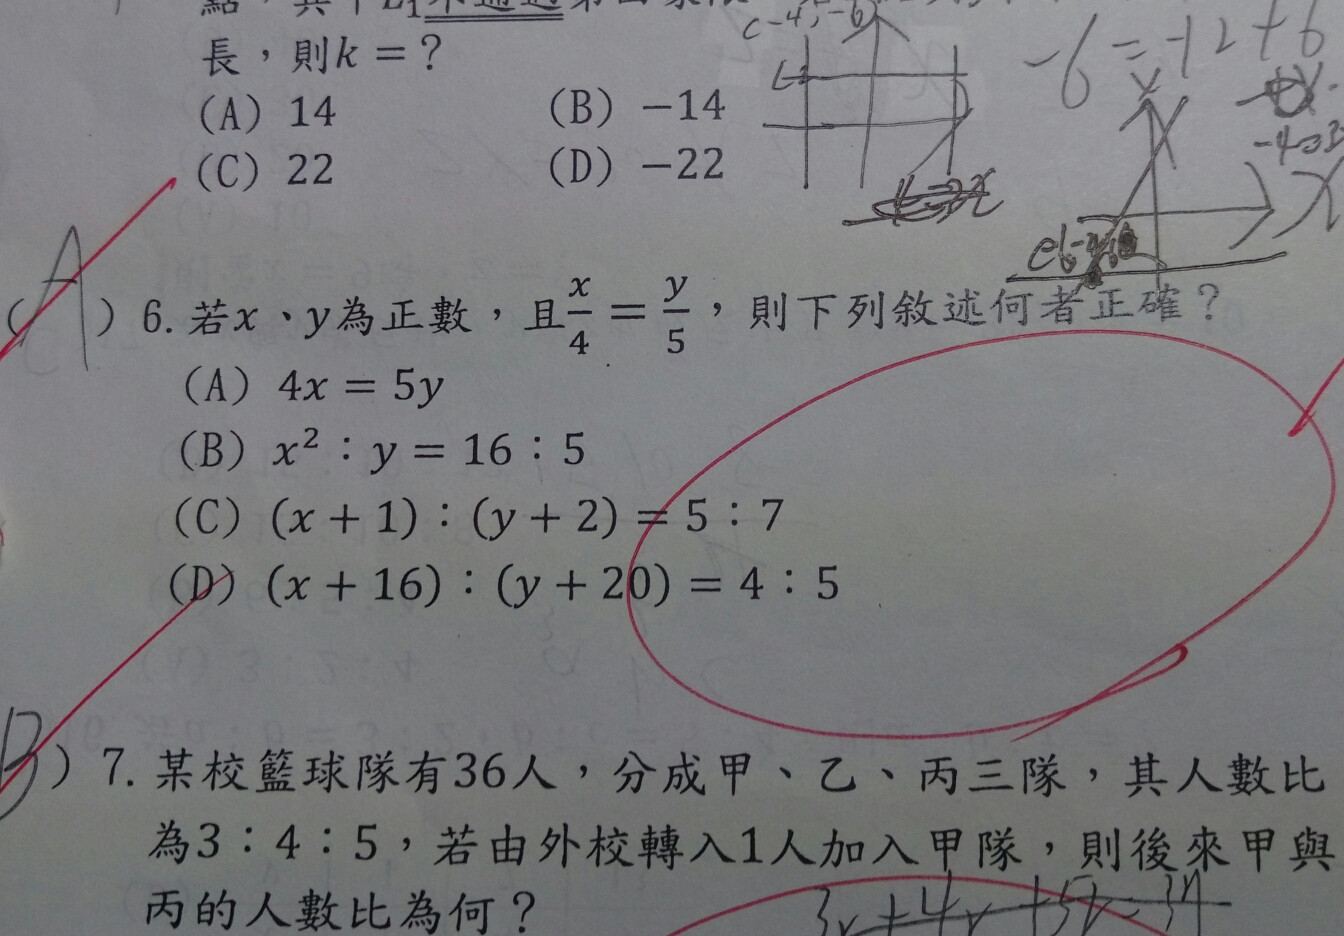 長，則k＝？
(A) 14 (B) −14
(C) 22 (D) −22
C-4,-6)
-6=-12+6
y
x
(A) 6. 若x、y為正數，且x/4＝y/5，則下列敘述何者正確？
(A) 4x = 5y
(B) x²：y = 16：5
(C) (x + 1)：(y + 2) = 5：7
(D) (x + 16)：(y + 20) = 4：5
B) 7. 某校籃球隊有36人，分成甲、乙、丙三隊，其人數比
為3：4：5，若由外校轉入1人加入甲隊，則後來甲與
丙的人數比為何？